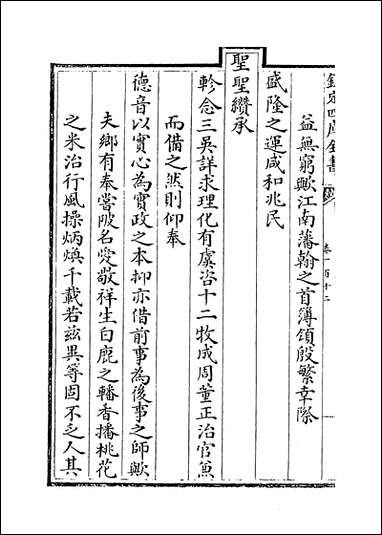 欽定四庫全書
卷一百十二
益無窮歟江南藩翰之首簿領殷繁幸際
盛隆之運咸和兆民
聖聖纘承
軫念三吳詳求理化有虞咨十二牧成周董正治官兼
而備之然則仰奉
德音以實心為實政之本抑亦借前事為後事之師歟
夫鄉有奉嘗陂名愛敬祥生白鹿之轓香播桃花
之米治行風操炳煥千載若茲異等固不乏人其